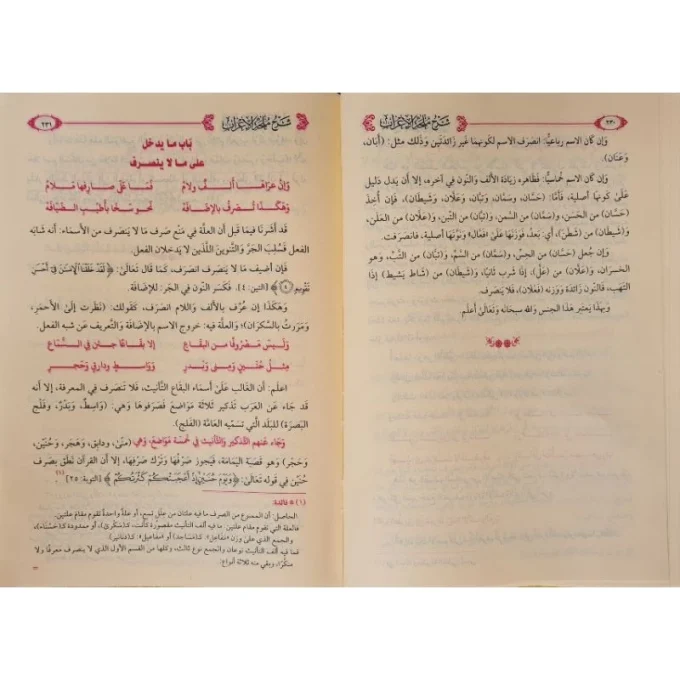 شرح ملحة الإعراب
٢٣٠
وإن كان الاسم رباعيًّا: انصرف الاسم لكونهما غير زائدتين وَذَلكَ مثل: (أَبَان،
وَعَنَان).
وَإن كَان الاسم خُماسيًّا: فظاهره زيَادَة الألف والنُّون في آخره، إلا أن يَدل دَليل
عَلَىٰ كَونها أصلية، فَأمَّا: (حَسَّان، وَسَمَّان، وَتبَّان، وَعَلَّان، وَشَيطَان)، فَإن أُخِذَ
(حَسَّان) من الحَسَن، و(سَمَّان) من السَّمن، و(تبَّان) من التِّبن، و(عَلَّان) من العَلَن،
و(شَيطَان) من (شَطَنَ)، أي: بعدَ، فَوَزنهَا عَلَىٰ «فعَّال» وَنوْنهَا أصلية، فانصرفت.
وَإن جُعل (حسان) من الحِسِّ، و(سمان) من السّم، و(تبان) من التَّب، وهو
الخسرَان، و(عَلَّان) من (عَلَّ)، إذَا شرب ثانيًا، و(شَيْطَان) من (شاط يَشيط) إذَا
التهَب، فالنون زائدَة وَوَزنه «فعلَان»، فَلَا يَنصَرف.
وَبهذَا يَعتبر هذَا الجنس وَالله سبحَانه وَتَعَالَىٰ أعلم.
شرح ملحة الإعراب
٢٣١
بَاب مَا يدخل
على مَا لا ينصرف
وَإنْ عَرَاهَا أَلِفٌ وَلامُ فَمَا عَلَى صَارِفِهَا مَلَامُ
وَهَكَذَا تُصْرَفُ بِالإِضَافَهْ نَحْوُ سَخَا بِأَطْيَبِ الضِّيَافَهْ
قَد أَشَرنَا فيمَا قَبل أن العلَّة في مَنع صَرف مَا لَا يَنصَرف من الأسمَاء: أنه شَابه
الفعل فسُلِب الجَرَّ وَالتنوينَ اللَّذَين لَا يَدخلَان الفعل.
فَإن أُضيف مَا لَا يَنصَرف انصَرف، كَمَا قَال تَعَالَىٰ: ﴿لَقَدْ خَلَقْنَا الْإِنسَٰنَ فِىٓ أَحْسَنِ
تَقْوِيمٍ ٤﴾ [التين: ٤]، فكَسَر النُون في الجَرِّ؛ للإضَافَة.
وَهَكَذَا إن عُرِّف بالألف وَاللام انصَرَف، كَقولك: (نَظَرت إلَى الأحمَرِ،
وَمَرَرتُ بالسَّكرَانِ)؛ وَالعلَّة فيه: خروج الاسم بالإضَافة وَالتَّعريف عَن شبه الفعل.
وَلَيسَ مَصْرُوفًا مِنَ البِقَاعِ إلا بِقَاعًا جِئْنَ فِي السَّمَاعِ
مِثْلُ حُنَيْنٍ وَمِنًى وَبَدْرِ وَوَاسِطٍ وَدَابِقٍ وَحَجْرِ
اعلم: أن الغَالب عَلَىٰ أسمَاء البقَاع التَّأنيث، فَلَا تنصَرف في المَعرفة، إلَّا أنه
قَد جَاء عَن العَرَب تَذكير ثَلَاثَة مَوَاضعَ فَصَرَفوهَا وَهيَ: (وَاسِطٌ، وَبَدْرٌ، وَفَلْج
البَصرَة) للبلَد الَّتي تُسَمّيه العَامَّة (الفَلج).
وَجَاء عَنهم التَّذكير وَالتَّأنيث في خَمسَة مَوَاضعَ، وَهيَ (منًى، ودَابق، وَهَجَر، وَحُنَين،
وَحَجْر) وَهو قَصبَة اليَمَامَة، فَيَجوز صَرْفُهَا وَتَرْك صَرْفِهَا، إلا أن القرآن نَطَق بصَرف
حُنَين في قَوله تَعَالَىٰ: ﴿وَيَوْمَ حُنَيْنٍ إِذْ أَعْجَبَتْكُمْ كَثْرَتُكُمْ﴾ [التوبة: ٢٥](١).
(١) * فائدة:
الحاصل: أن الممنوع من الصرف ما فيه علتان من علل تسع، أو علة واحدة تقوم مقام علتين.
فالعلة التي تقوم مقام علتين: ألف التأنيث مقصورة كانت، كـ(سَكْرَى)، أو ممدودة كـ(حسناء)،
والجمع الذي على وزن «مفاعل»، كـ(مساجد) أو «مفاعيل»، كـ(دنانير).
فما فيه ألف التأنيث نوعان والجمع نوع ثالث، وكلها من القسم الأول الذي لا ينصرف معرفًا ولا
منكرًا، وبقي منه ثلاثة أنواع: